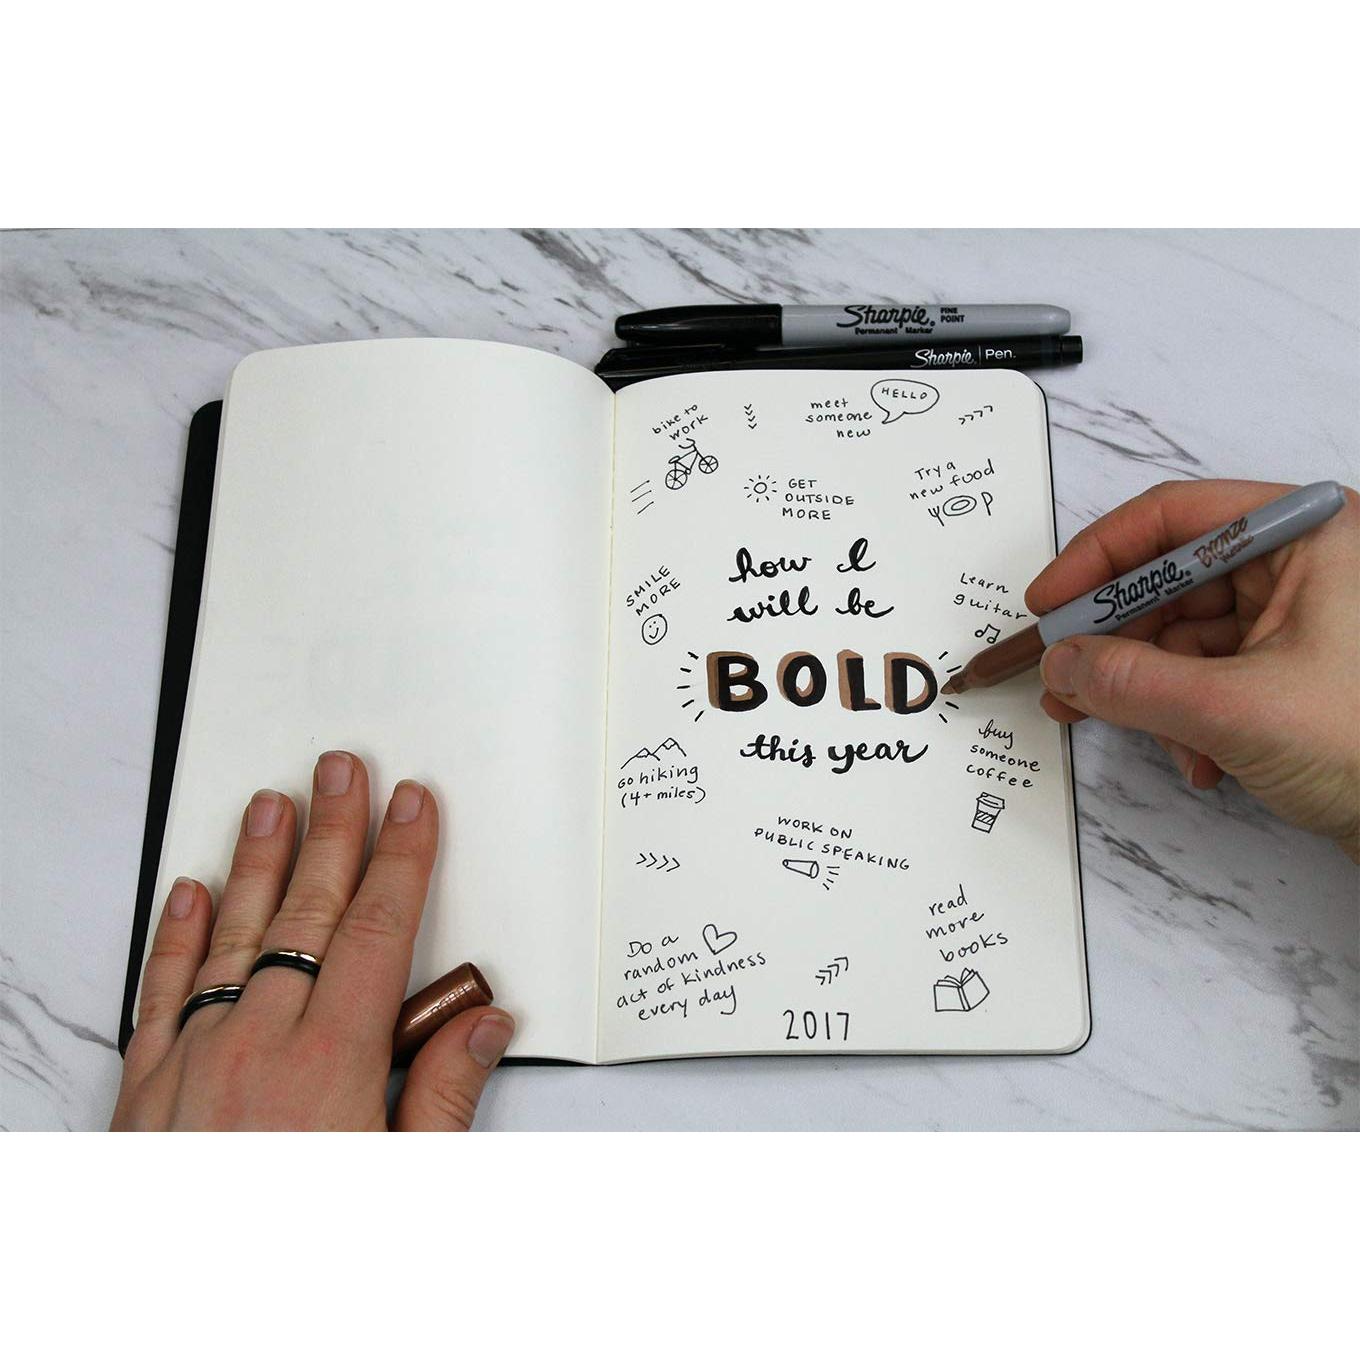 Sharpie® FINE
POINT
Permanent Marker
Sharpie® Pen.
bike to
work
meet
someone
new
HELLO
GET
OUTSIDE
MORE
Try a
new food
SMILE
MORE
how I
will be
BOLD
this year
Learn
guitar
Sharpie®
Permanent Marker
Bronze
Metallic
GO hiking
(4+ miles)
buy
someone
coffee
WORK ON
PUBLIC SPEAKING
DO a
random
act of kindness
every day
read
more
books
2017